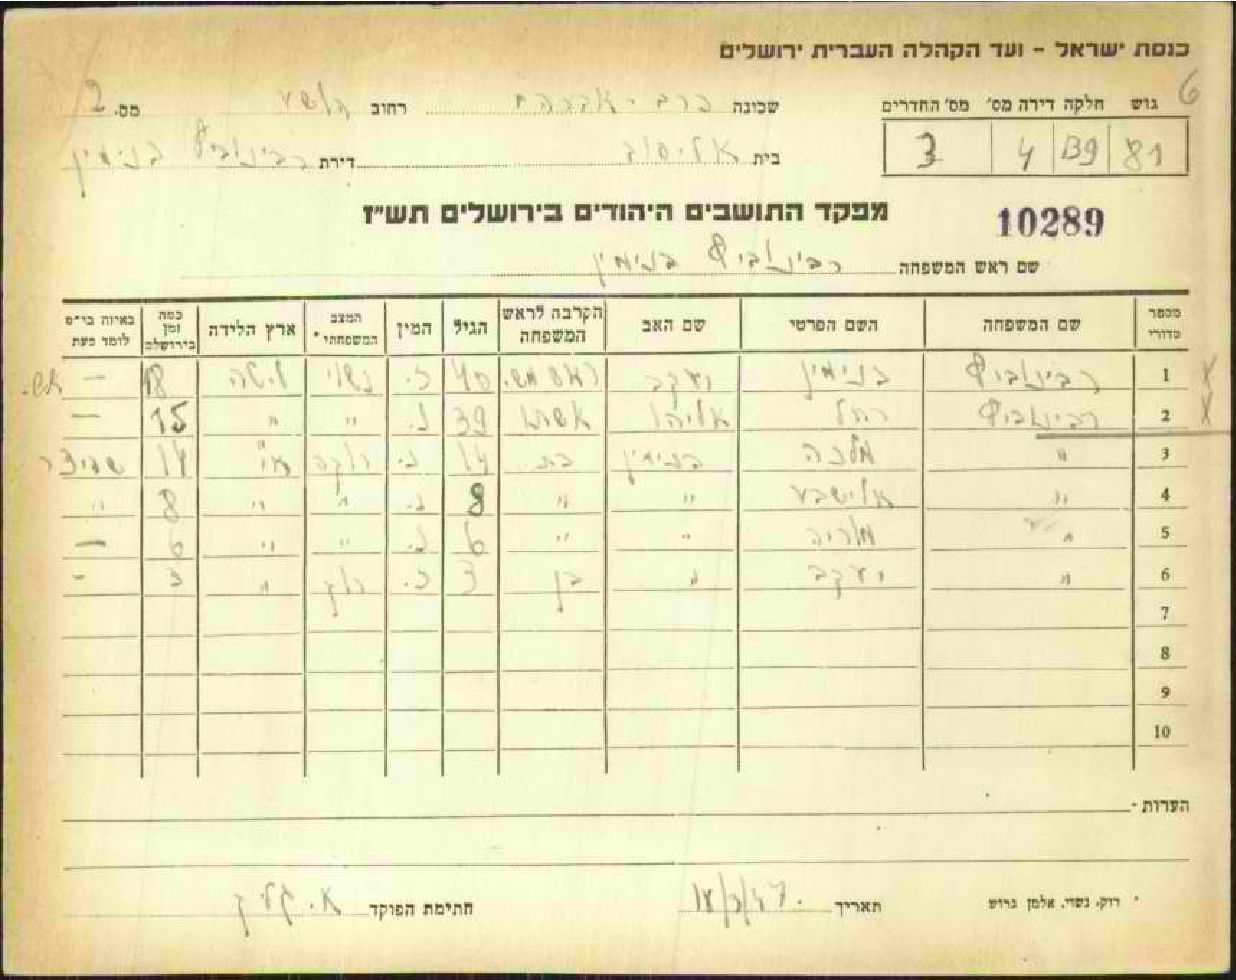 כנסת ישראל – ועד הקהלה העברית ירושלים
6
גוש חלקה דירה מס' מס' החדרים
81 B9 4 3
שכונה כרם - אברהם רחוב הושע מס. 2
בית דירת רבינוביץ בנימין
מפקד התושבים היהודים בירושלים תש"ז
10289
שם ראש המשפחה רבינוביץ בנימין
מספר סדורי שם המשפחה השם הפרטי שם האב הקרבה לראש המשפחה הגיל המין המצב המשפחתי* ארץ הלידה כמה זמן בירושלם באיזה בי"ס לומד כעת
1 רבינוביץ בנימין יעקב ראש מש. 40 ז. נשוי ליטה 18 — אש.
2 רבינוביץ רחל אליהו אשתו 39 נ. " " 15 —
3 " מלכה בנימין בת 14 נ. רוקה א"י 14
4 " אלישבע " " 8 נ. " " 8 "
5 " " " 6 נ. " " 6 —
6 " יעקב " בן 3 ז. רוק " 3 -
7
8
9
10
הערות -
* רוק, נשוי, אלמן גרוש תאריך חתימת הפוקד א.